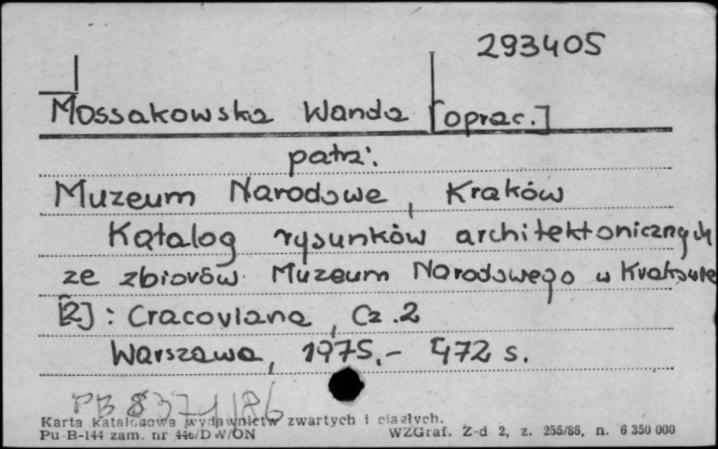 293405
Mossakowska Wanda [oprac.]
patrz:
Muzeum Narodowe, Kraków
Katalog rysunków architektonicznych
ze zbiorów Muzeum Narodowego w Krakowie
[2]: Cracoviana, Cz. 2
Warszawa, 1975.- 472 s.
PB 8371/86
Karta katalogowa wydawnictw zwartych i ciągłych.
Pu-B-144 zam. nr 446/DW/ON WZGraf. Z-d 2, z. 255/86, n. 6 350 000